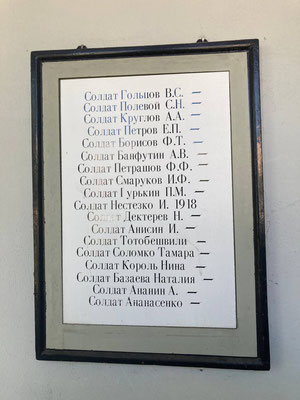 Солдат Гольцов В.С. —
Солдат Полевой С.Н. —
Солдат Круглов А.А. —
Солдат Петров Е.П. —
Солдат Борисов Ф.Т. —
Солдат Банфутин А.В. —
Солдат Петрашов Ф.Ф. —
Солдат Смаруков И.Ф. —
Солдат Гурькин П.М. —
Солдат Нестезко И. 1918
Солдат Дектерев Н. —
Солдат Анисин И. —
Солдат Тотобешвили —
Солдат Соломко Тамара —
Солдат Король Нина —
Солдат Базаева Наталия —
Солдат Ананин А. —
Солдат Ананасенко —